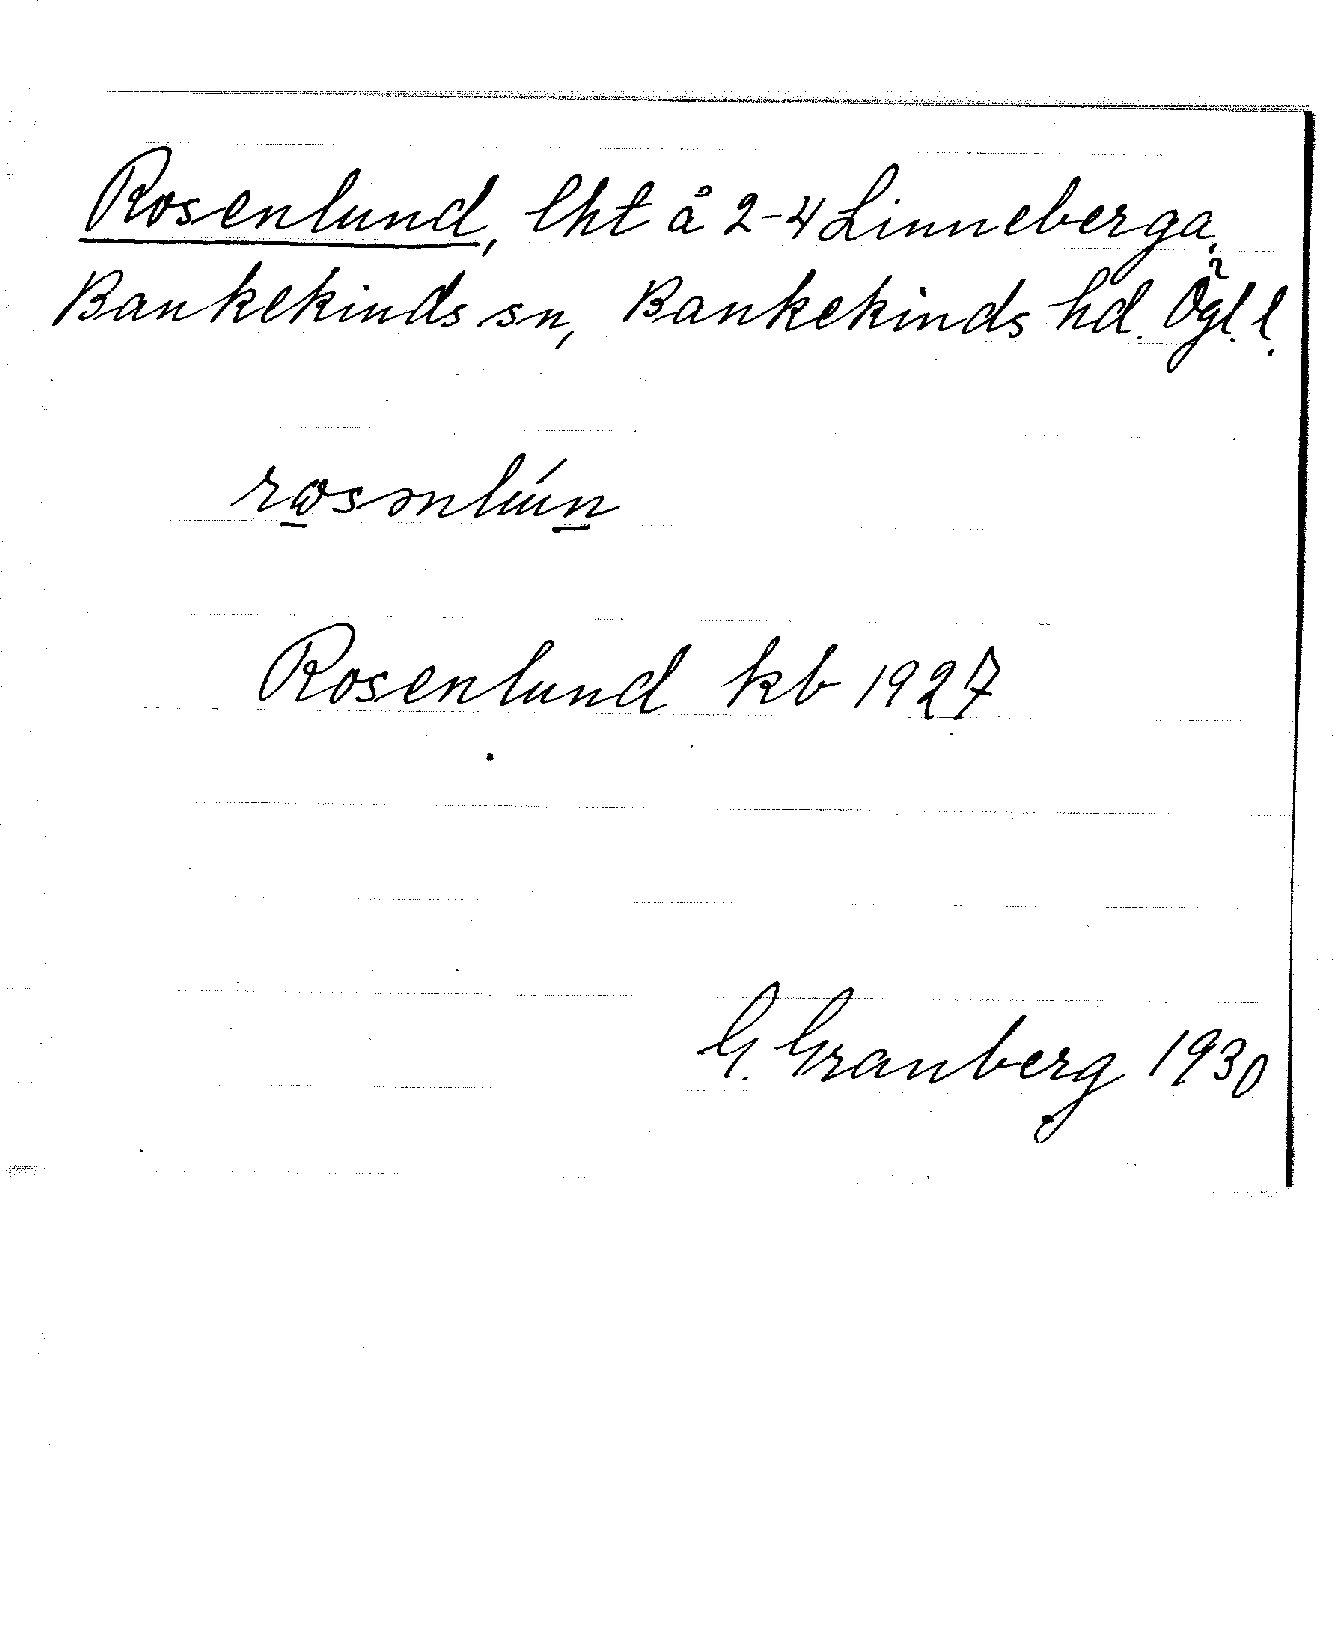 Rosenlund, lht å 2-4 Linneberga,
Bankekinds sn, Bankekinds hd. Ögl. l.
rosənlún
Rosenlund kb 1927
G. Granberg 1930